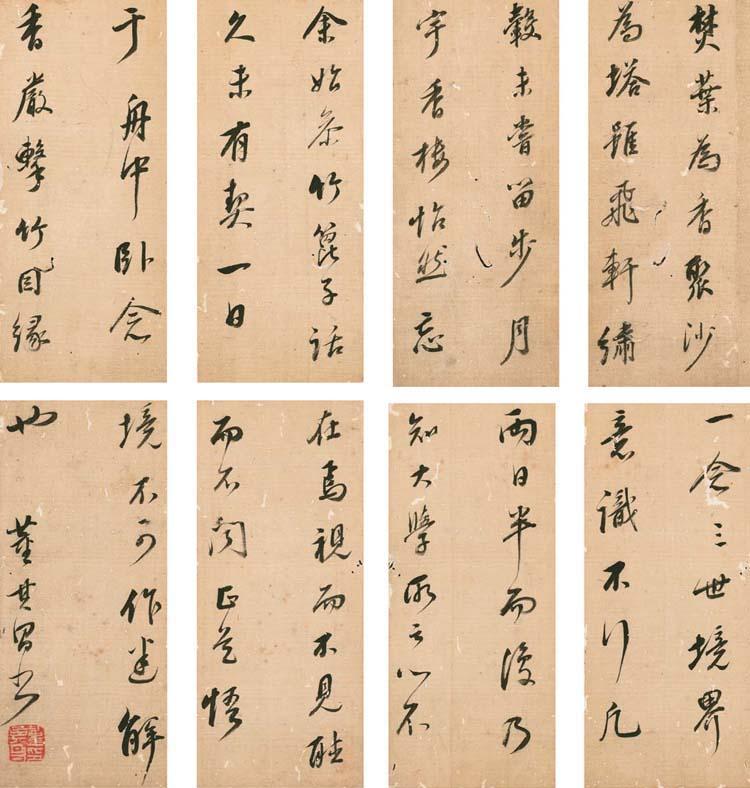 焚葉為香聚沙
為塔雖飛軒繡
轂未嘗留步月
宇香樓怡然忘
余始參竹篦子話
久未有契一日
于舟中臥念
香嚴擊竹因緣
一念三世境界
意識不行凡
兩日半而復乃
知大學所云心不
在焉視而不見聽
而不聞正是悟
境不可作迷解
也 董其昌書